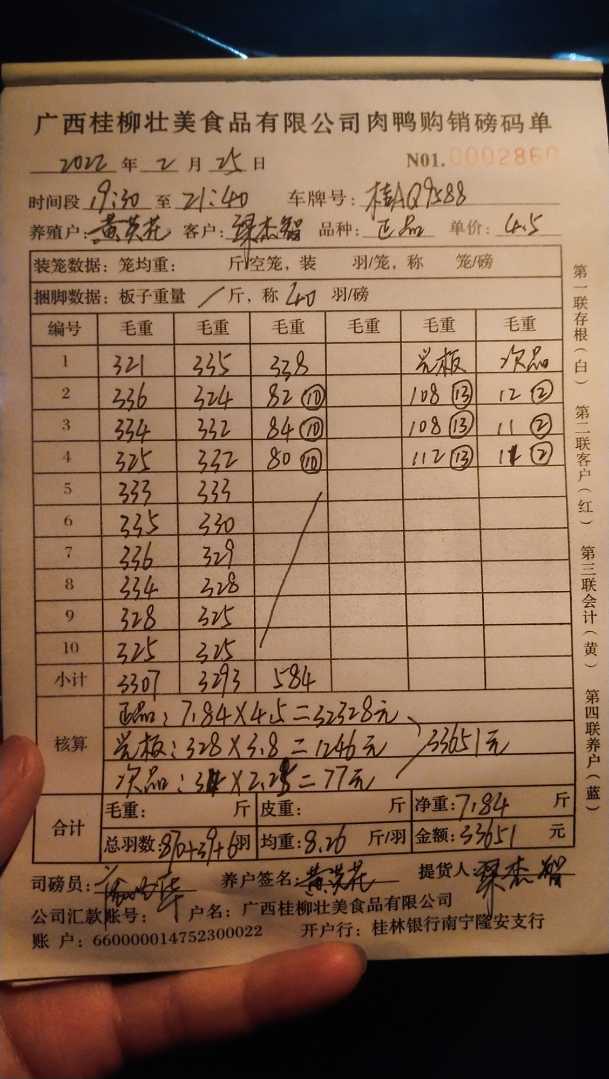 广西桂柳壮美食品有限公司肉鸭购销磅码单
2022 年 2 月 25 日 N01.0002860
时间段 19:30 至 21:40 车牌号: 桂AQ9588
养殖户: 黄英花 客户: 梁杰智 品种: 正品 单价: 4.5
装笼数据: 笼均重: 斤/空笼, 装 羽/笼, 称 笼/磅
捆脚数据: 板子重量 / 斤, 称 40 羽/磅
编号 毛重 毛重 毛重 毛重 毛重 毛重
1 321 335 338 光板 次品
2 336 324 82 ⑩ 108 ⑬ 12 ②
3 334 332 84 ⑩ 108 ⑬ 11 ②
4 325 332 80 ⑩ 112 ⑬ 11 ②
5 333 333
6 335 330
7 336 329
8 334 328
9 328 325
10 325 325
小计 3307 3293 584
核算
正品: 7184×4.5=32328元
光板: 328×3.8=1246元 33651元
次品: 34×2.25=77元
合计
毛重: 斤 皮重: 斤 净重: 7184 斤
总羽数: 870+39+6羽 均重: 8.26 斤/羽 金额: 33651 元
司磅员: 养户签名: 黄英花 提货人: 梁杰智
公司汇款账号: 户名: 广西桂柳壮美食品有限公司
账 户: 660000014752300022 开户行: 桂林银行南宁隆安支行
第一联存根(白) 第二联客户(红) 第三联会计(黄) 第四联养户(蓝)